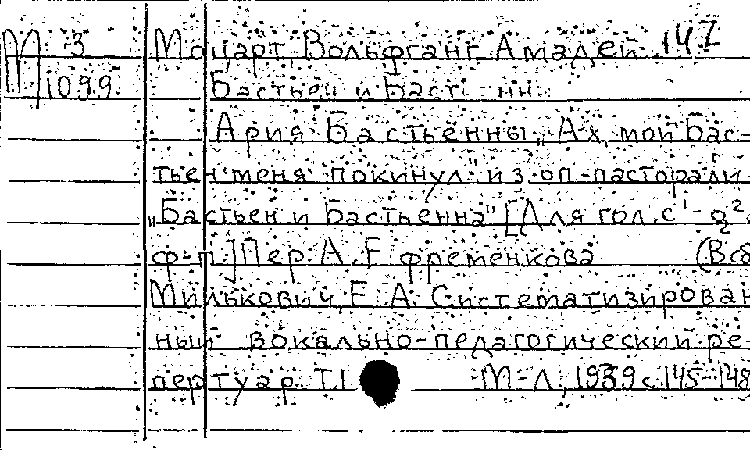 М 3 Моцарт, Вольфганг Амадей 147
1099 Бастьен и Баст
Ария Бастьенны "Ах, мой Бас-
тьен меня покинул" из оп-пасторали
"Бастьен и Бастьенна" [Для гол. с
ф-п.] Пер. А. Е. Фременкова (Все
Милькович, Е. А. Систематизирован
ный вокально-педагогический ре-
пертуар Т. I М-Л, 1939 с. 145-148